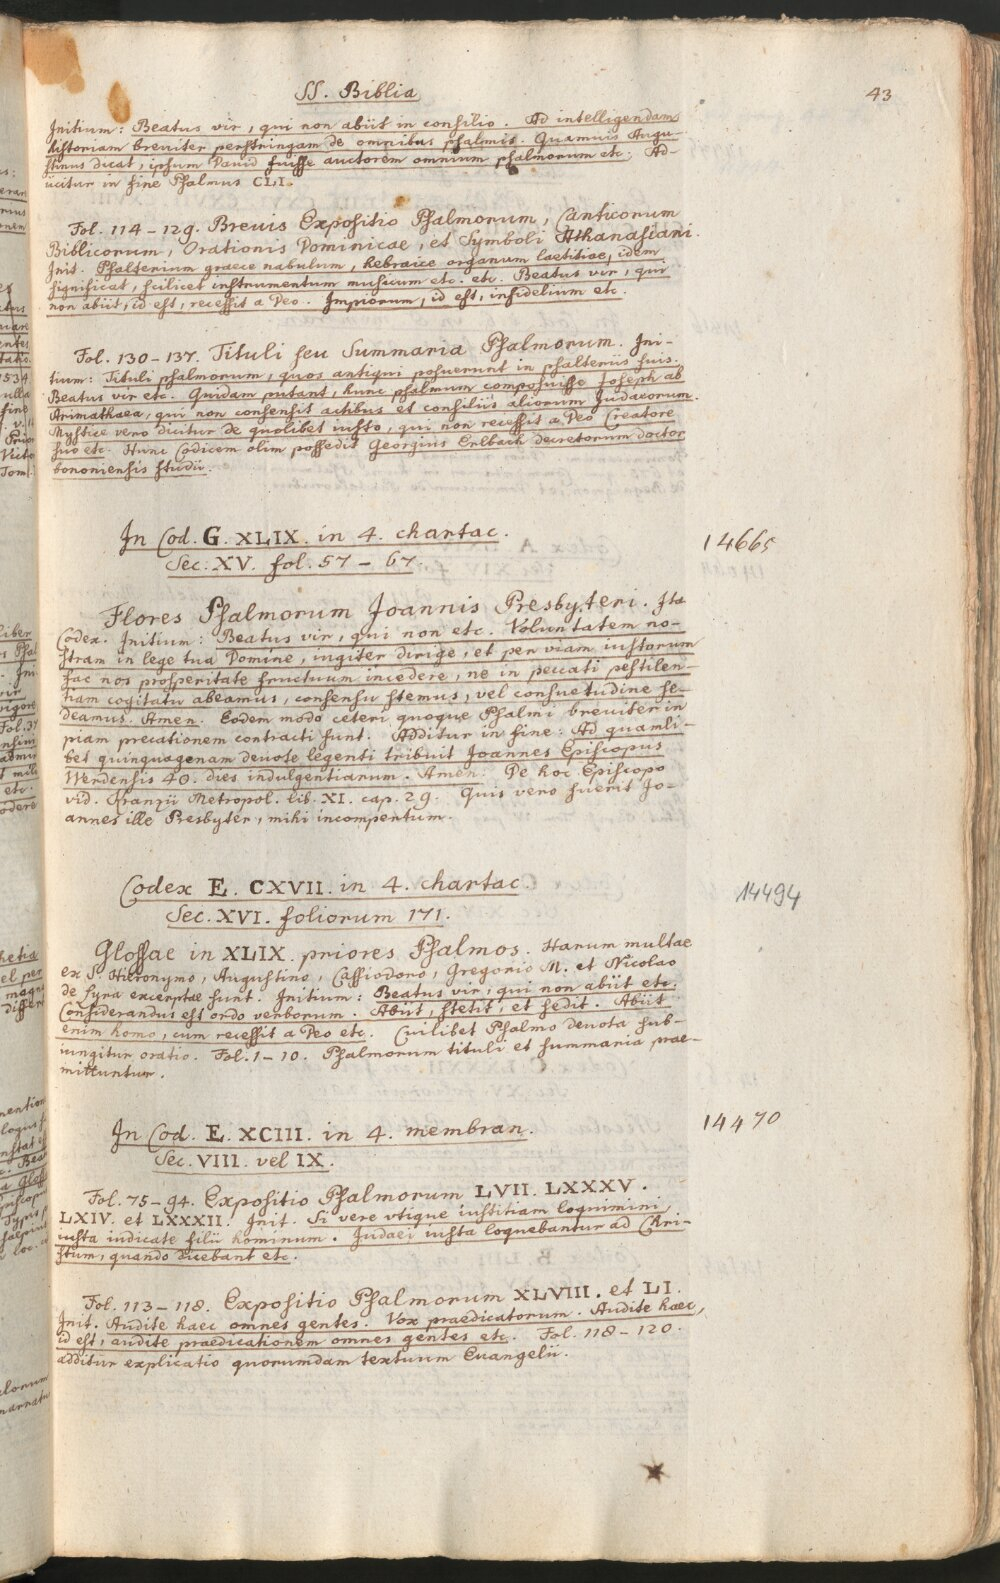 SS. Biblia
43
Initium: Beatus vir, qui non abiit in consilio. Ad intelligendam
historiam breviter perstringam de omnibus psalmis. Quamvis Augu-
stinus dicat, ipsum David fuisse auctorem omnium psalmorum etc. Ad-
iicitur in fine Psalmus CLI.
Fol. 114-129. Brevis Expositio Psalmorum, Canticorum
Biblicorum, Orationis Dominicae, et Symboli Athanasiani.
Init. Psalterium graece nabulum, hebraice organum laetitiae, idem
significat, scilicet instrumentum musicum etc. etc. Beatus vir, qui
non abiit, id est, recessit a Deo. Impiorum, id est, infidelium etc.
Fol. 130-137. Tituli seu Summaria Psalmorum. Ini-
tium: Tituli psalmorum, quos antiqui posuerunt in psalteriis suis.
Beatus vir etc. Quidam putant, hunc psalmum composuisse Joseph ab
Arimathaea, qui non consensit actibus et consiliis aliorum Judaeorum.
Mystice vero dicitur de quolibet iusto, qui non recessit a Deo Creatore
suo etc. Hunc Codicem olim possedit Georgius Erlbach decretorum doctor
bononiensis studii.
In Cod. G. XLIX. in 4. chartac.
14665
Sec. XV. fol. 57-67.
Flores Psalmorum Joannis Presbyteri. Ita
Codex. Initium: Beatus vir, qui non etc. Voluntatem no-
stram in lege tua Domine, iugiter dirige, et per viam iustorum
fac nos prosperitate fructuum incedere, ne in peccati pestilen-
tiam cogitatu abeamus, consensu stemus, vel consuetudine se-
deamus. Amen. Eodem modo ceteri quoque Psalmi breviter in
piam precationem contracti sunt. Additur in fine: Ad quamli-
bet quinquagenam devote legenti tribuit Joannes Episcopus
Werdensis 40. dies indulgentiarum. Amen. De hoc Episcopo
vid. Kranzii Metropol. lib. XI. cap. 29. Quis vero fuerit Jo-
annes ille Presbyter, mihi incompertum.
Codex E. CXVII. in 4. chartac.
14494
Sec. XVI. foliorum 171.
Glossae in XLIX. priores Psalmos. Harum multae
ex S. Hieronymo, Augustino, Cassiodoro, Gregorio M. et Nicolao
de Lyra excerptae sunt. Initium: Beatus vir, qui non abiit etc.
Considerandus est ordo verborum. Abiit, stetit, et sedit. Abiit
enim homo, cum recessit a Deo etc. Cuilibet Psalmo devota sub-
iungitur oratio. Fol. 1-10. Psalmorum tituli et summaria prae-
mittuntur.
In Cod. E. XCIII. in 4. membran.
14470
Sec. VIII. vel IX.
Fol. 75-94. Expositio Psalmorum LVII. LXXXV.
LXIV. et LXXXII. Init. Si vere vtique iustitiam loquimini,
iusta iudicate filii hominum. Judaei iusta loquebantur ad Chri-
stum, quando dicebant etc.
Fol. 113-118. Expositio Psalmorum XLVIII. et LI.
Init. Audite haec omnes gentes. Vox praedicatorum. Audite haec,
id est, audite praedicationem omnes gentes etc. Fol. 118-120.
additur explicatio quorumdam textuum Euangelii.